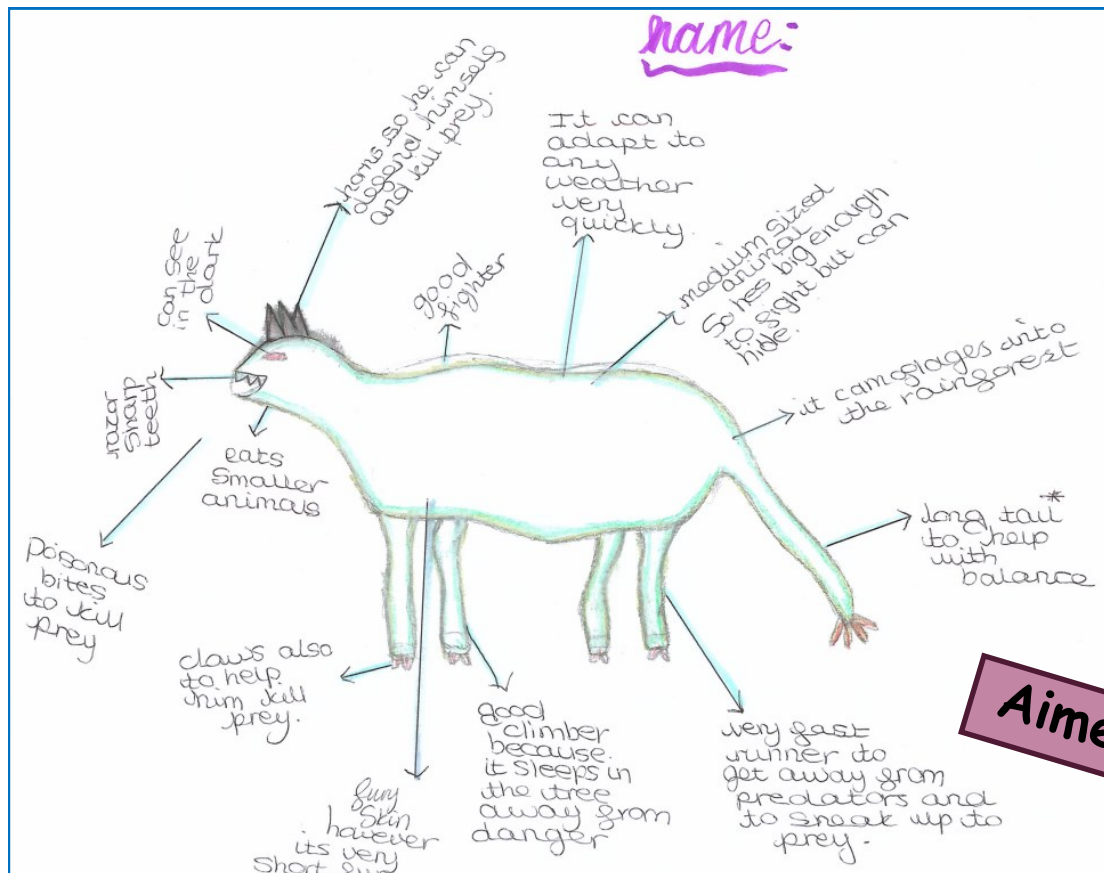 name:
horns so he can
degend himself
and kill prey.
It can
adapt to
any
weather
very
quickly.
medium sized
animal
So hes big enough
to fight but can
hide.
can see
in the
dark
good
fighter
it camoflages into
the rainforest
razor
sharp
teeth
eats
smaller
animals
long tail*
to help
with
balance
Poisonous
bites
to kill
prey
claws also
to help
him kill
prey.
good
climber
because.
it sleeps in
the tree
away from
danger
very fast
runner to
get away from
predators and
to sneak up to
prey.
Aime
fury
skin
however
its very
short